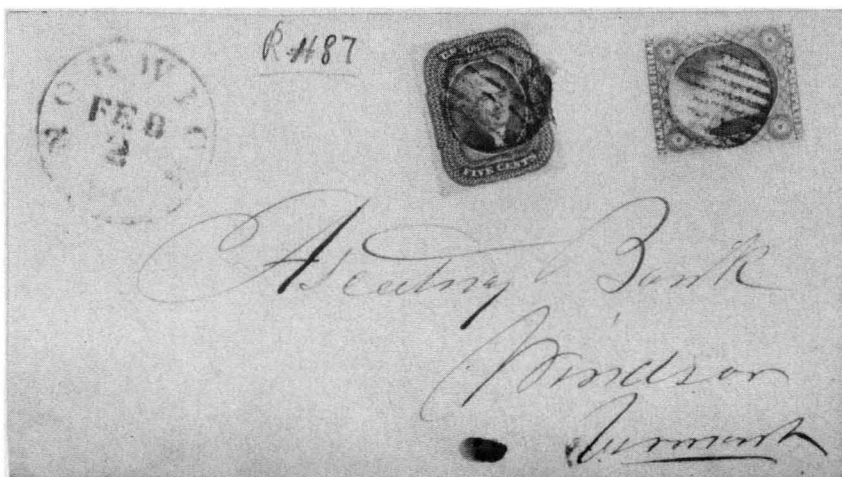 R #87
NORWICH
FEB
2
FIVE CENTS
Ascutney Bank
Windsor
Vermont